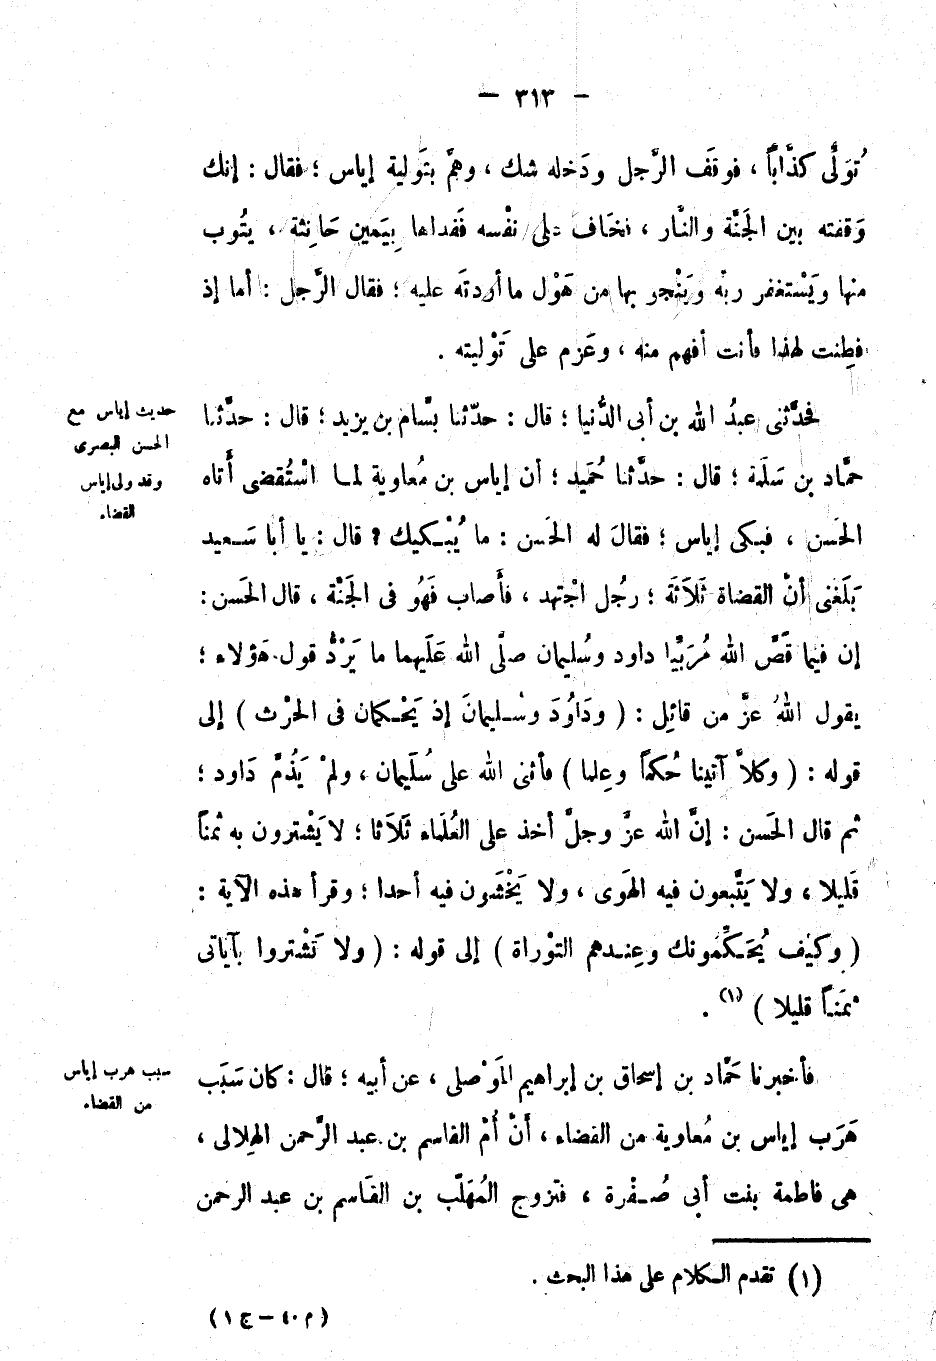 — ٣١٣ —
تُوَلَّى كذَّاباً ، فوقَف الرَّجل ودَخله شك ، وهمَّ بتَولية إياس ؛ فقال : إنك
وَقفته بين الجَنَّة والنَّار ، فخَاف على نفْسه فَفداها بِيَمين حَانِثة ، يتُوب
منها ويَسْتغفر ربه ويَنْجو بها من هَوْل ما أردتَه عليه ؛ فقال الرَّجل : أما إذ
فطِنت لهذا فأنت أفهم منه ، وعَزم على تَوْليته .
حديث إياس مع
الحسن البصرى
وقد ولى إياس
القضاء.
فحدَّثنى عبدُ الله بن أبى الدُّنيا ؛ قال : حدّثنا بسَّام بن يزيد ؛ قال : حدَّثنا
حمَّاد بن سَلَمة ؛ قال : حدَّثنا حُمَيد ؛ أن إياس بن مُعاوية لمـا اسْتُقضى أَتاه
الحَسن ، فبكى إياس ؛ فقالَ له الحَسن : ما يُبْـكيك ؟ قال : يا أبا سَـعيد
بَلَغنى أنّ القضاة ثَلَاثَة ؛ رجُل اجْتهد ، فأَصاب فَهُو فى الجَنَّة ، قال الحَسن :
إن فيما قَصَّ الله داود وسُليمان صلَّى الله عَلَيهما ما يَرْدُّ قول هَؤلاء ؛
يقول اللهُ عزَّ من قائِل : ( ودَاوُدَ وسُـليمانَ إذ يَحْـكمان فى الحرْث ) إلى
قوله : ( وكلاَّ آتينا حُكماً وعِلما ) فأثنى الله على سُلَيمان ، ولمْ يَذُمَّ دَاود ؛
ثم قال الحَسن : إنَّ الله عزَّ وجلَّ أخذ على العُلَماء ثَلَاثا ؛ لا يَشْترون به ثمناً
قَليلا ، ولا يَتَّبعون فيه الهَوى ، ولا يَخْشَون فيه أحدا ؛ وقرأ هذه الآية :
( وكيْف يُحَـكِّمونك وعِنـدهم التوْراة ) إلى قوله : ( ولا تَشْتروا بآياتى
ثمَنـاً قليلا ) (١) .
سبب هرب إياس
من القضاء
فأخبرنا حَمَّاد بن إسحاق بن إبراهيم المَوْصلى ، عن أبيه ؛ قال : كان سَبَب
هَرَب إياس بن مُعاوية من القضاء ، أَنّ أُمّ القاسم بن عبد الرَّحمن الهِلالى ،
هى فاطمة بنت أبى صُـفْرة ، فتزوج المُهَلّب بن القَاسم بن عبد الرحمن
(١) تقدم الـكلام على هذا البحث .
( م ٤٠ — ج ١ )